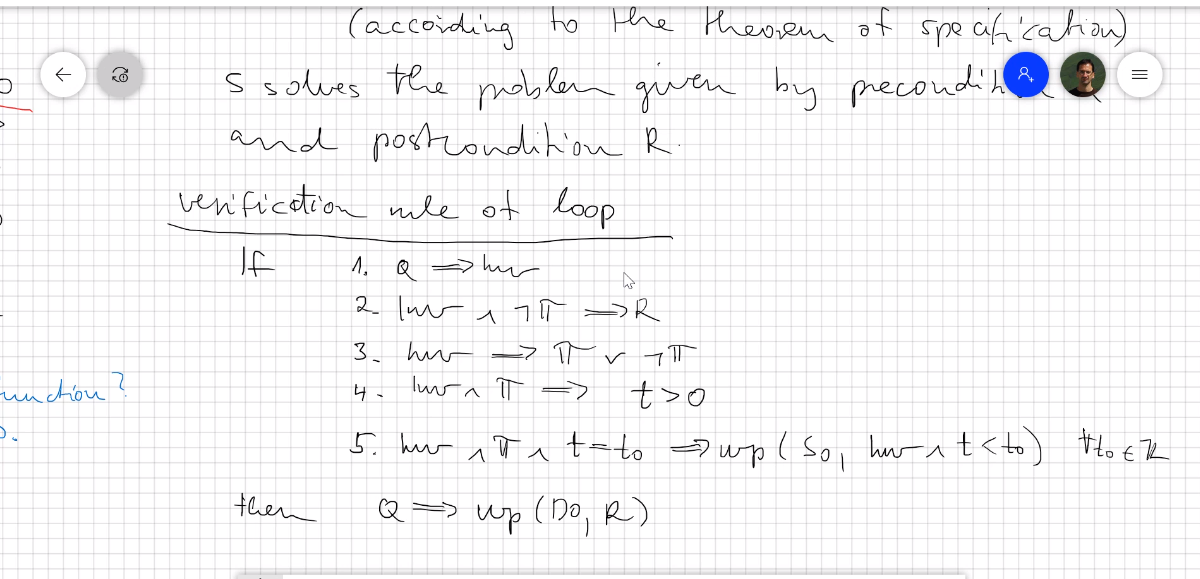 (according to the theorem of specification)
S solves the problem given by
and postcondition R.
verification rule of loop
If 1. Q ⟹ Inv
2. Inv ∧ ¬π ⟹ R
3. Inv ⟹ π ∨ ¬π
unction?
4. Inv ∧ π ⟹ t>0
5. Inv ∧ π ∧ t=t₀ ⟹ wp(S₀, Inv ∧ t<t₀) ∀t₀∈ℤ
then Q ⟹ wp(DO, R)